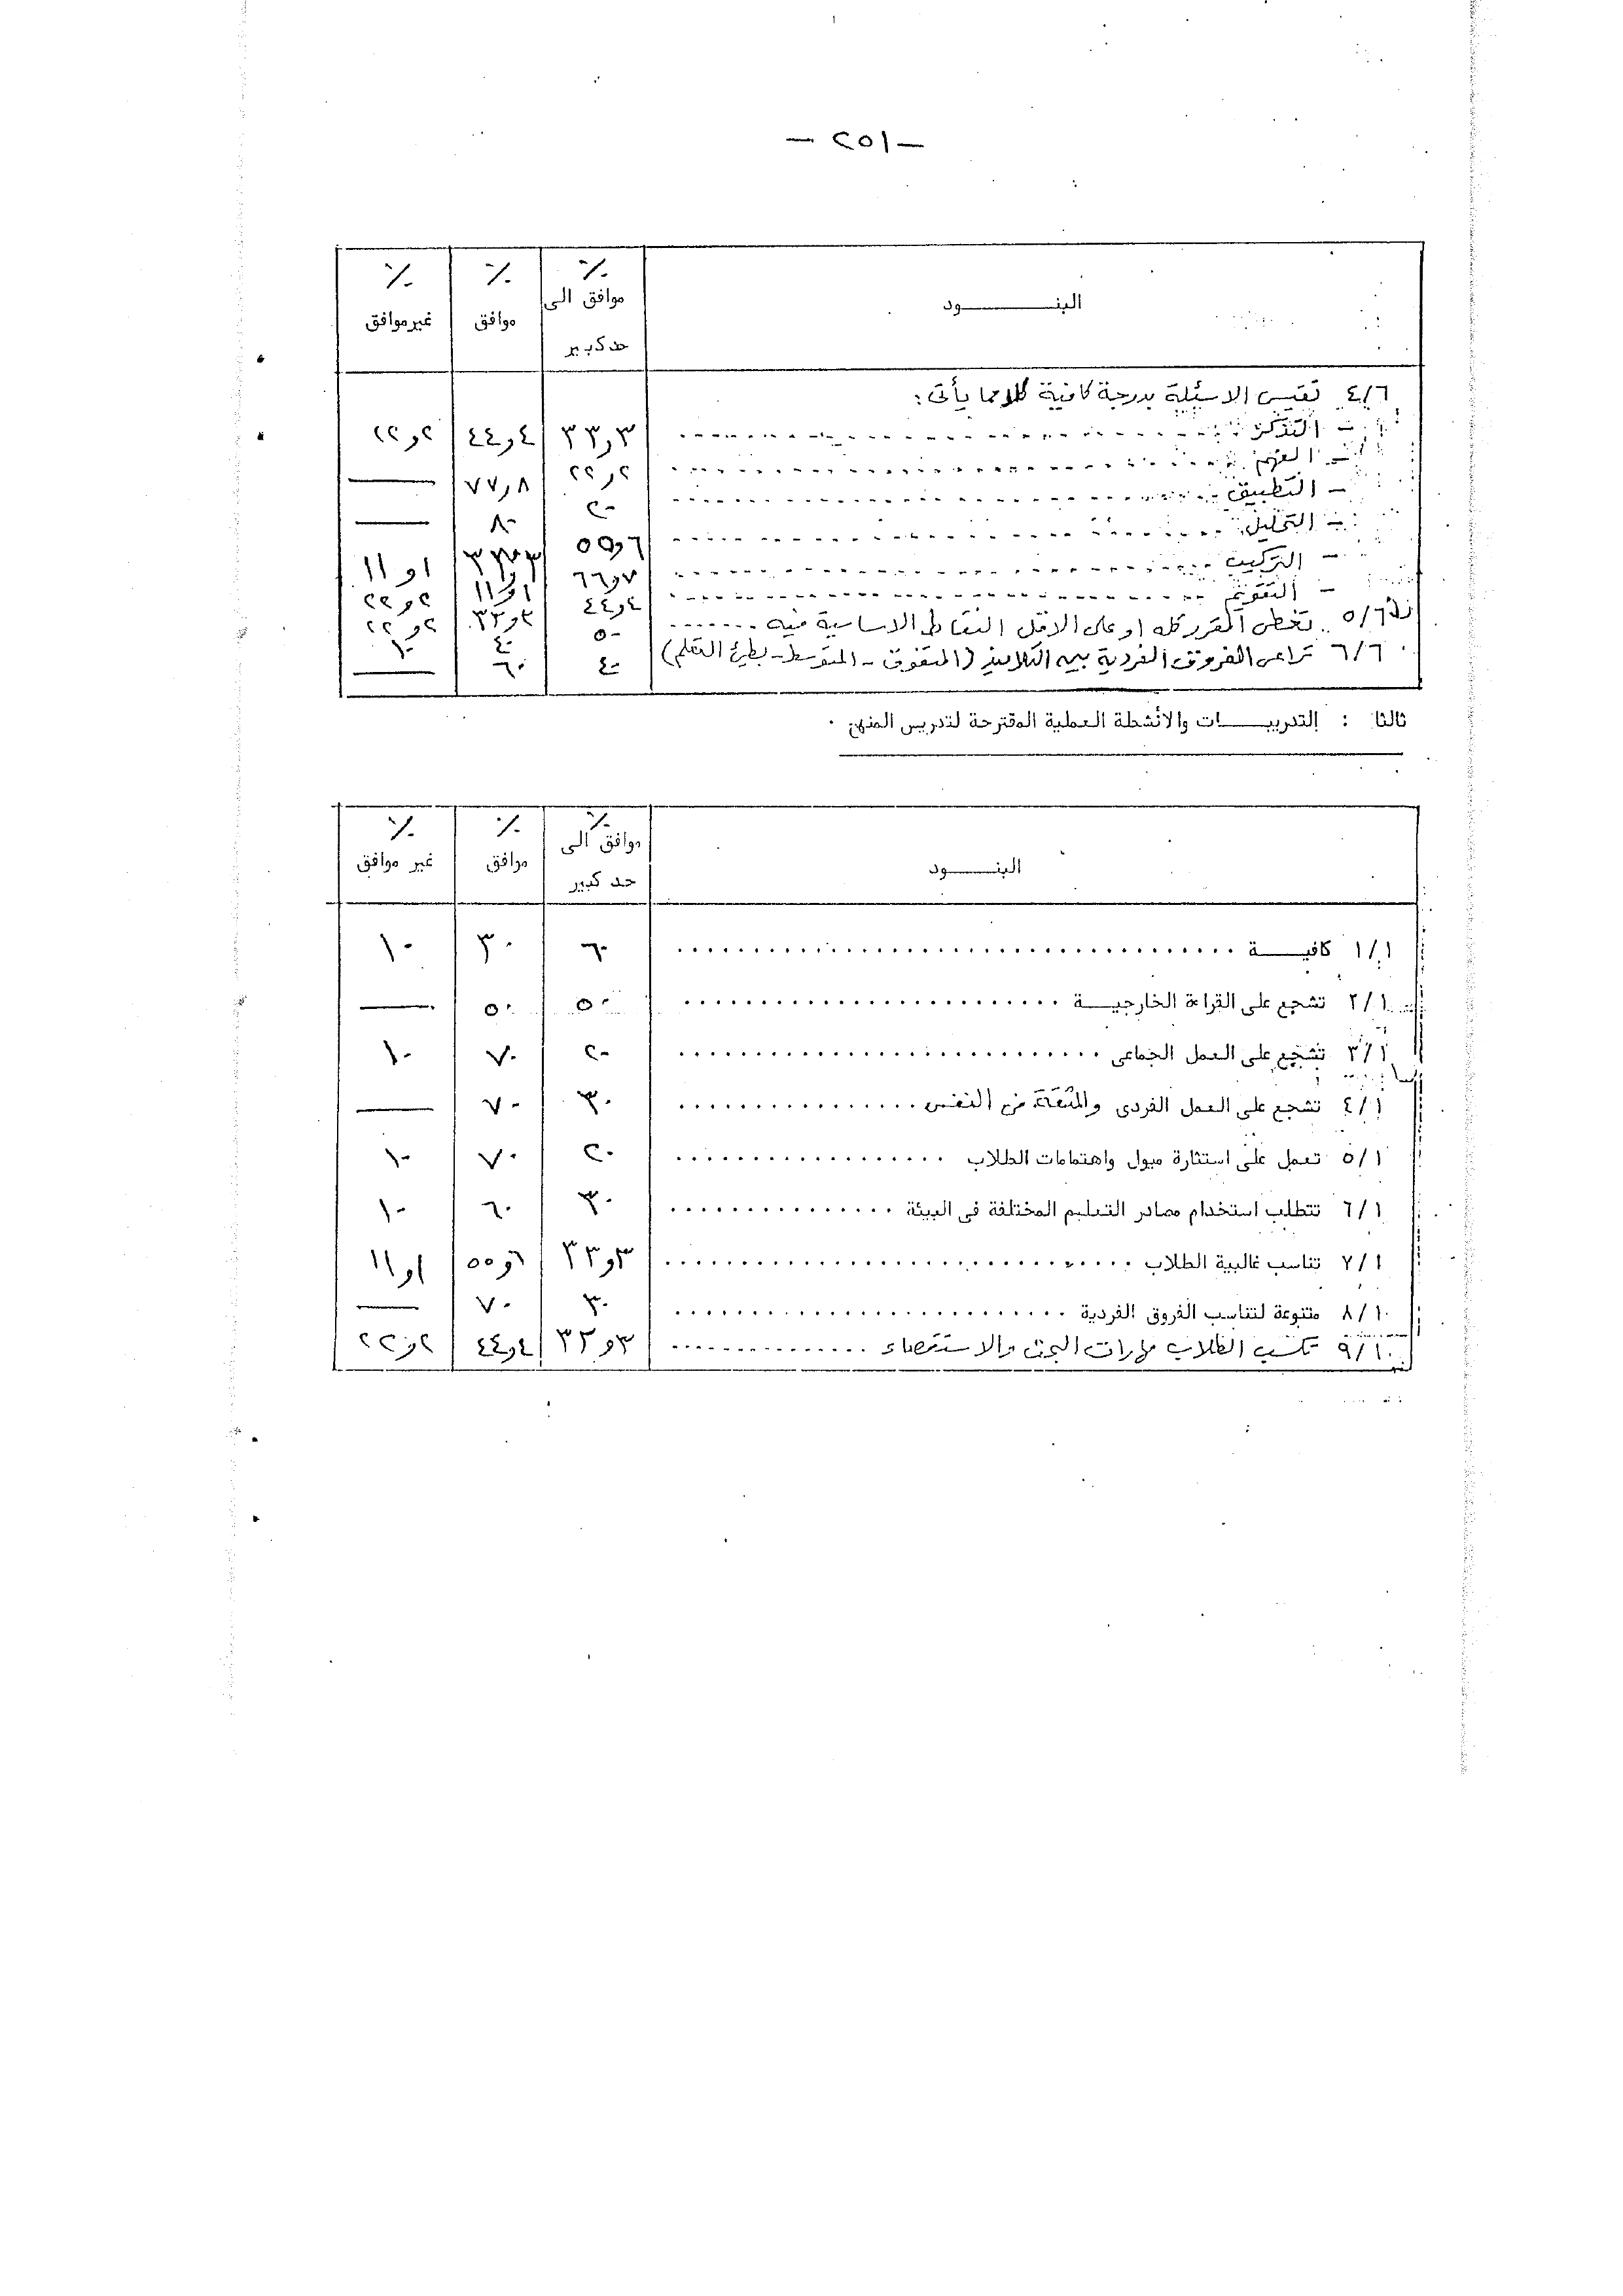 — ٢٥١ —
البنـــــــود ٪ موافق الى حد كبير ٪ موافق ٪ غير موافق
٤/٦ تقيس الاسئلة بدرجة كافية كلا مما يأتى :
- التذكر ٣ر٣٣ ٤ر٤٤ ٢ر٢٢
- الفهم ٢ر٢٢ ٨ر٧٧ ——
- التطبيق ٢٠ ٨٠ ——
- التحليل ٦ر٥٥ ٣ر٣٣ ١ر١١
- التركيب ٧ر٦٦ ١ر١١ ٢ر٢٢
- التقويم ٤ر٤٤ ٣ر٣٣ ٢ر٢٢
٥/٦ تغطى المقرر كله او على الاقل النقاط الاساسية فيه ....... ٥٠ ٤٠ ١٠
٦/٦ تراعى الفروق الفردية بين التلاميذ (المتفوق - المتوسط - بطئ التعلم) ٤٠ ٦٠ ——
ثالثا : التدريبـــات والأنشطة العملية المقترحة لتدريس المنهج .
البنـــــود ٪ موافق الى حد كبير ٪ موافق ٪ غير موافق
١/١ كافيـــة .......... ٦٠ ٣٠ ١٠
٢/١ تشجع على القراءة الخارجيـــة .......... ٥٠ ٥٠ ——
٣/١ تشجع على العمل الجماعى .......... ٢٠ ٧٠ ١٠
٤/١ تشجع على العمل الفردى والثقة من النفس .......... ٣٠ ٧٠ ——
٥/١ تعمل على استثارة ميول واهتمامات الطلاب .......... ٢٠ ٧٠ ١٠
٦/١ تتطلب استخدام مصادر التعليم المختلفة فى البيئة .......... ٣٠ ٦٠ ١٠
٧/١ تناسب غالبية الطلاب .......... ٣ر٣٣ ٦ر٥٥ ١ر١١
٨/١ متنوعة لتناسب الفروق الفردية .......... ٣٠ ٧٠ ——
٩/١ تكسب الطلاب مهارات البحث والاستقصاء .......... ٣ر٣٣ ٤ر٤٤ ٢ر٢٢